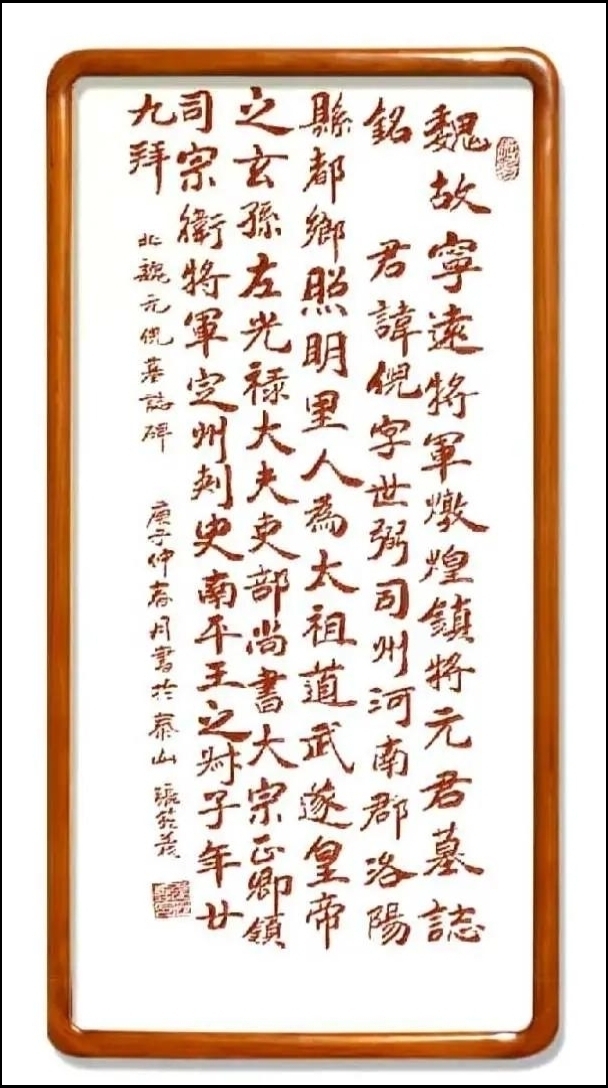 魏故寧遠將軍燉煌鎮將元君墓誌
銘　君諱倪字世弼司州河南郡洛陽
縣都鄉照明里人為太祖道武遂皇帝
之玄孫左光祿大夫吏部尚書大宗正卿領
司宗衛將軍定州刺史南平王之叔子年廿
九拜
北魏元倪墓誌碑　庚子仲春月書於泰山　張